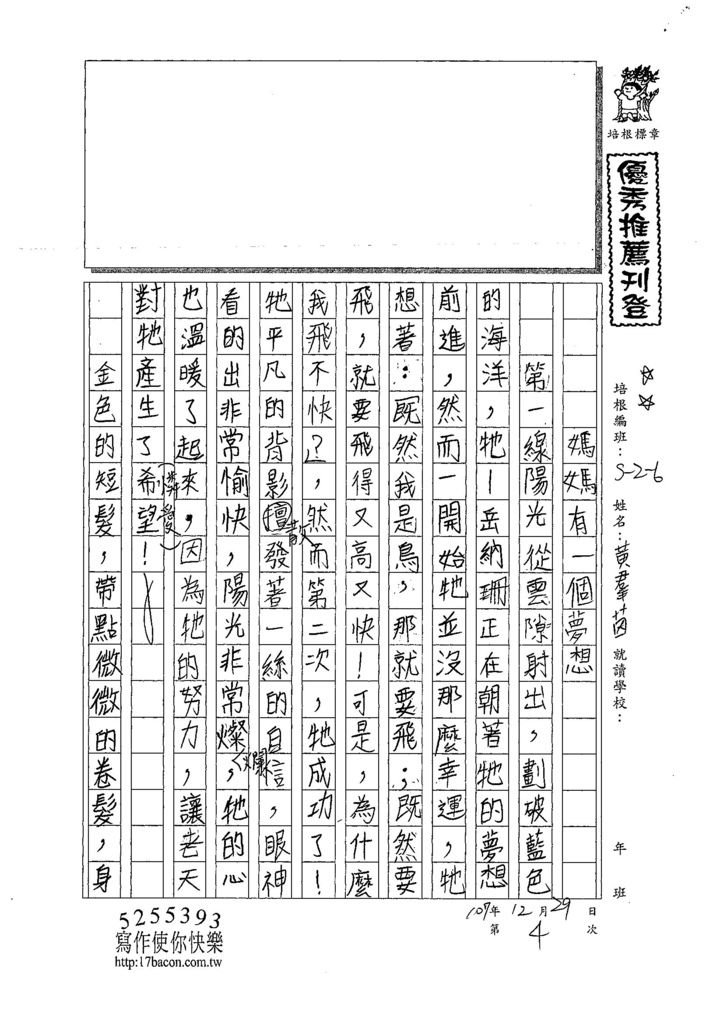 培根標章
優秀推薦刊登
☆☆
培根編班：S-2-6 姓名：黃羣茵 就讀學校： 年 班
107年12月29日
第4次
媽媽有一個夢想
第一線陽光從雲隙射出，劃破藍色
的海洋，牠－岳納珊正在朝著牠的夢想
前進，然而一開始牠並沒那麼幸運，牠
想著：「既然我是鳥，那就要飛；既然要
飛，就要飛得又高又快！可是，為什麼
我飛不快？」，然而第二次，牠成功了！
牠平凡的背影散發著一絲的自信，眼神
看的出非常愉快，陽光非常燦爛，牠的心
也溫暖了起來，因為牠的努力，讓老天
對牠產生了希望！（憐愛）
金色的短髮，帶點微微的卷髮，身
5255393
寫作使你快樂
http:17bacon.com.tw